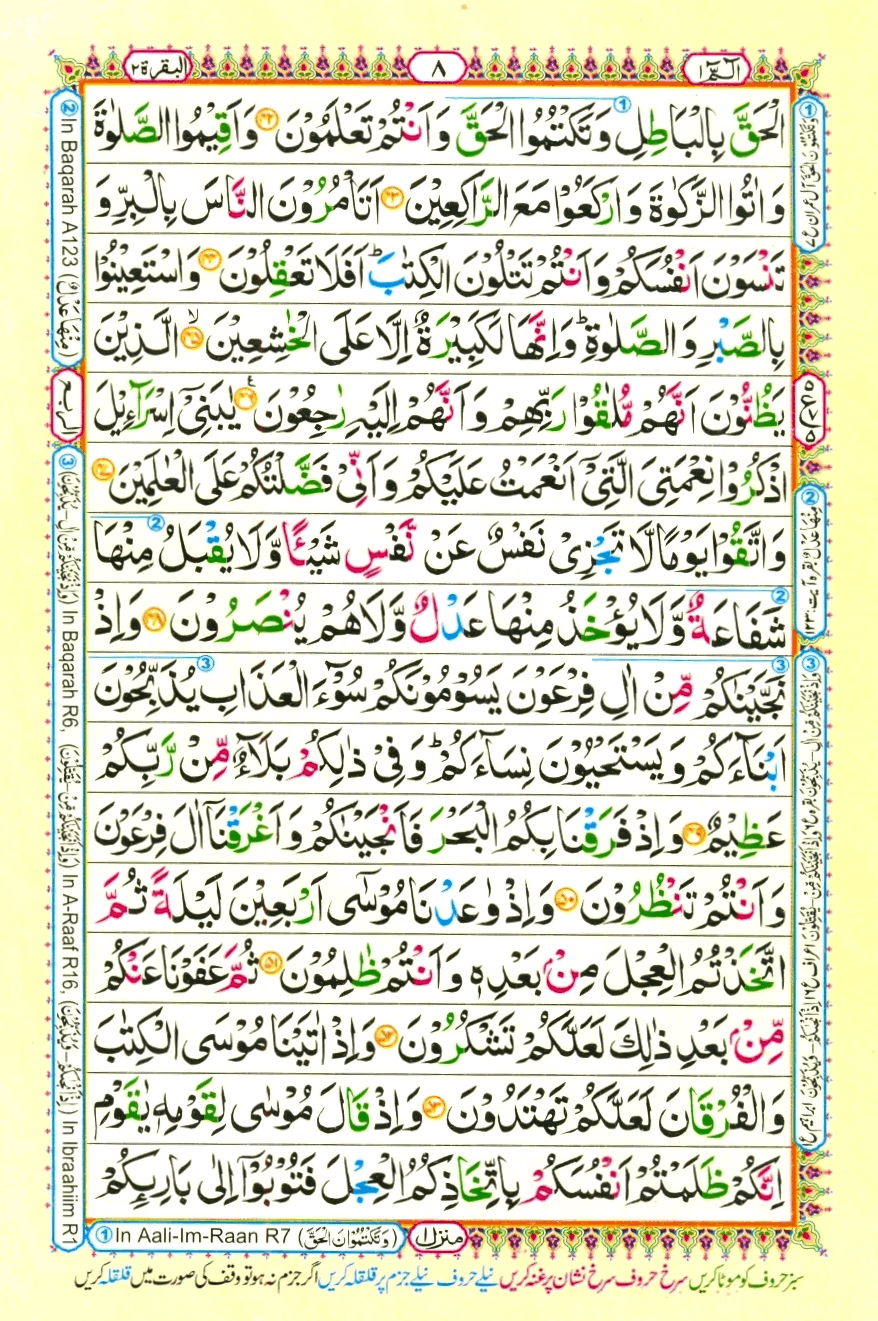 الٓمّٓ ١
٨
البقرة ٢
الْحَقَّ بِالْبَاطِلِ وَتَكْتُمُوا الْحَقَّ وَاَنْتُمْ تَعْلَمُوْنَ ﴿۴۲﴾ وَاَقِيْمُوا الصَّلٰوةَ
وَاٰتُوا الزَّكٰوةَ وَارْكَعُوْا مَعَ الرّٰكِعِيْنَ ﴿۴۳﴾ اَتَاْمُرُوْنَ النَّاسَ بِالْبِرِّ وَ
تَنْسَوْنَ اَنْفُسَكُمْ وَاَنْتُمْ تَتْلُوْنَ الْكِتٰبَ ؕ اَفَلَا تَعْقِلُوْنَ ﴿۴۴﴾ وَاسْتَعِيْنُوْا
بِالصَّبْرِ وَالصَّلٰوةِ ؕ وَاِنَّهَا لَكَبِيْرَةٌ اِلَّا عَلَى الْخٰشِعِيْنَ ﴿۴۵﴾ الَّذِيْنَ
يَظُنُّوْنَ اَنَّهُمْ مُّلٰقُوْا رَبِّهِمْ وَاَنَّهُمْ اِلَيْهِ رٰجِعُوْنَ ﴿۴۶﴾ يٰبَنِيْٓ اِسْرَآءِيْلَ
اذْكُرُوْا نِعْمَتِيَ الَّتِيْٓ اَنْعَمْتُ عَلَيْكُمْ وَاَنِّيْ فَضَّلْتُكُمْ عَلَى الْعٰلَمِيْنَ ﴿۴۷﴾
وَاتَّقُوْا يَوْمًا لَّا تَجْزِيْ نَفْسٌ عَنْ نَّفْسٍ شَيْـًٔا وَّلَا يُقْبَلُ مِنْهَا
شَفَاعَةٌ وَّلَا يُؤْخَذُ مِنْهَا عَدْلٌ وَّلَا هُمْ يُنْصَرُوْنَ ﴿۴۸﴾ وَاِذْ
نَجَّيْنٰكُمْ مِّنْ اٰلِ فِرْعَوْنَ يَسُوْمُوْنَكُمْ سُوْٓءَ الْعَذَابِ يُذَبِّحُوْنَ
اَبْنَآءَكُمْ وَيَسْتَحْيُوْنَ نِسَآءَكُمْ ؕ وَفِيْ ذٰلِكُمْ بَلَآءٌ مِّنْ رَّبِّكُمْ
عَظِيْمٌ ﴿۴۹﴾ وَاِذْ فَرَقْنَا بِكُمُ الْبَحْرَ فَاَنْجَيْنٰكُمْ وَاَغْرَقْنَآ اٰلَ فِرْعَوْنَ
وَاَنْتُمْ تَنْظُرُوْنَ ﴿۵۰﴾ وَاِذْ وٰعَدْنَا مُوْسٰٓى اَرْبَعِيْنَ لَيْلَةً ثُمَّ
اتَّخَذْتُمُ الْعِجْلَ مِنْۢ بَعْدِهٖ وَاَنْتُمْ ظٰلِمُوْنَ ﴿۵۱﴾ ثُمَّ عَفَوْنَا عَنْكُمْ
مِّنْۢ بَعْدِ ذٰلِكَ لَعَلَّكُمْ تَشْكُرُوْنَ ﴿۵۲﴾ وَاِذْ اٰتَيْنَا مُوْسَى الْكِتٰبَ
وَالْفُرْقَانَ لَعَلَّكُمْ تَهْتَدُوْنَ ﴿۵۳﴾ وَاِذْ قَالَ مُوْسٰى لِقَوْمِهٖ يٰقَوْمِ
اِنَّكُمْ ظَلَمْتُمْ اَنْفُسَكُمْ بِاتِّخَاذِكُمُ الْعِجْلَ فَتُوْبُوْٓا اِلٰى بَارِئِكُمْ
① وتكتمون الحق آل عمران ع ٧
٥
٧
٥
② منها عدل بقره آيت ١٢٣
② In Baqarah A123 (مِنْهَا عَدْلٌ)
الربع
③ (وَاِذْ نَجَّيْنٰكُمْ مِّنْ اٰلِ – يُذَبِّحُوْنَ) In Baqarah R6, (وَاِذْ اَنْجَيْنٰكُمْ مِّنْ – يُقَتِّلُوْنَ) In A-Raaf R16, (اِذْ اَنْجٰكُمْ – وَيُذَبِّحُوْنَ) In Ibraahiim R1
① In Aali-Im-Raan R7 (وَتَكْتُمُوْنَ الْحَقَّ)
منزل ١
سبز حروف کو موٹا کریں سرخ حروف سرخ نشان پر غنہ کریں نیلے حروف نیلے جزم پر قلقلہ کریں اگر جزم نہ ہو تو وقف کی صورت میں قلقلہ کریں